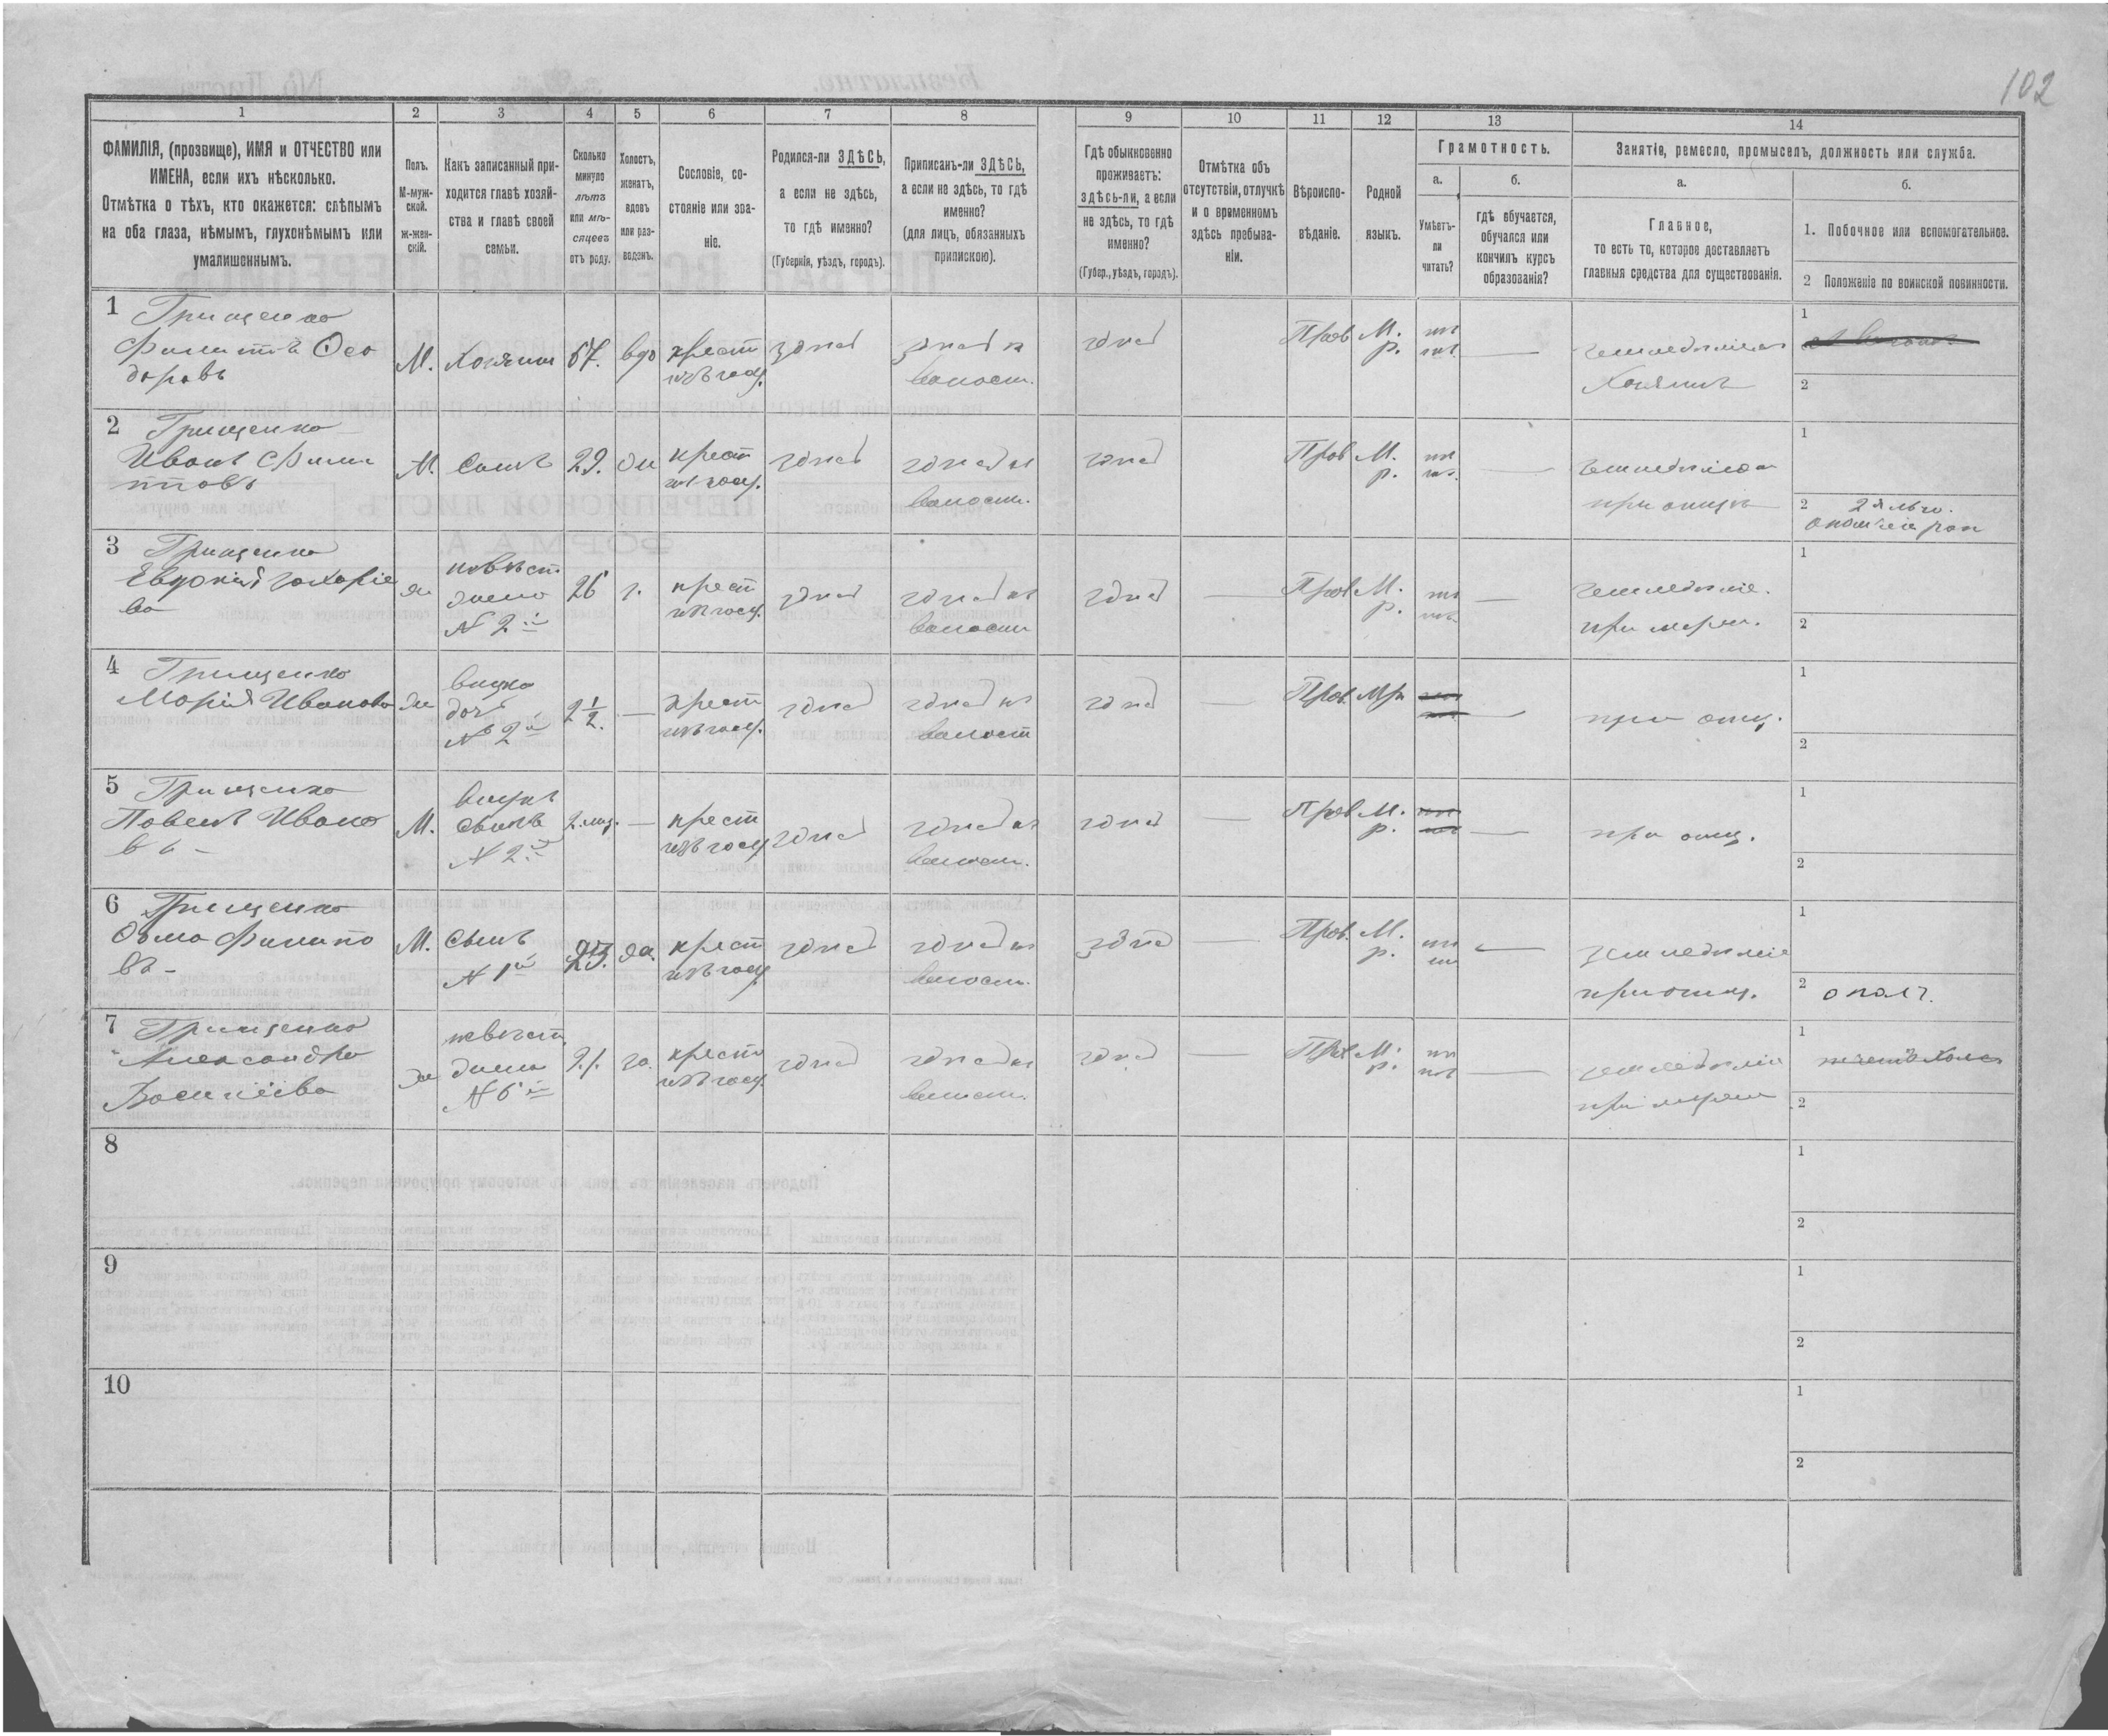 102
1 2 3 4 5 6 7 8 9 10 11 12 13 14
ФАМИЛІЯ, (прозвище), ИМЯ и ОТЧЕСТВО или
ИМЕНА, если ихъ нѣсколько.
Отмѣтка о тѣхъ, кто окажется: слѣпымъ
на оба глаза, нѣмымъ, глухонѣмымъ или
умалишеннымъ.
Полъ.
М-муж-
ской.
ж-жен-
скій.
Какъ записанный при-
ходится главѣ хозяй-
ства и главѣ своей
семьи.
Сколько
минуло
лѣтъ
или мѣ-
сяцевъ
отъ роду.
Холостъ,
женатъ,
вдовъ
или раз-
веденъ.
Сословіе, со-
стояніе или зва-
ніе.
Родился-ли ЗДѢСЬ,
а если не здѣсь,
то гдѣ именно?
(Губернія, уѣздъ, городъ).
Приписанъ-ли ЗДѢСЬ,
а если не здѣсь, то гдѣ
именно?
(для лицъ, обязанныхъ
припискою).
Гдѣ обыкновенно
проживаетъ:
здѣсь-ли, а если
не здѣсь, то гдѣ
именно?
(Губер., уѣздъ, городъ).
Отмѣтка объ
отсутствіи, отлучкѣ
и о временномъ
здѣсь пребыва-
ніи.
Вѣроиспо-
вѣданіе.
Родной
языкъ.
Грамотность.
а.
Умѣетъ-
ли
читать?
б.
гдѣ обучается,
обучался или
кончилъ курсъ
образованія?
Занятіе, ремесло, промыселъ, должность или служба.
а.
Главное,
то есть то, которое доставляетъ
главныя средства для существованія.
б.
1. Побочное или вспомогательное.
2 Положеніе по воинской повинности.
1 Грищенко
Филиппъ Ѳео
доровъ
М.
Хозяинъ
67.
вдо
крест
изъ госу.
здѣсь
здѣсь въ
волост.
здѣсь
Прав
М.
р.
Хозяинъ
1
2
2 Грищенко
Иванъ Филип
повъ
М.
Сынъ
29.
крест
изъ госу.
здѣсь
здѣсь въ
волост.
здѣсь
—
Прав
М.
р.
—
при отцѣ
1
2 2 я льго.
3 Грищенко
Евдокія Захаріе
ва
невѣст
жена
N 2й
26
крест
изъ госу.
здѣсь
здѣсь въ
волост
здѣсь
—
Прав
М.
р.
—
земледѣліе.
при мужи.
1
2
4 Грищенко
Марія Иванова
внука
дочь
№ 2й
2 1/2.
—
крест
изъ госу.
здѣсь
здѣсь въ
волост
здѣсь
—
Прав.
М р
—
при отц.
1
2
5 Грищенко
Павелъ Ивано
въ -
М.
внукъ
сынъ
N 2й
2. мѣс.
—
крест
изъ госу
здѣсь
здѣсь въ
волост.
здѣсь
—
Прав
М.
р.
—
при отц.
1
2
6 Грищенко
Ѳома Филипо
въ -
М.
Сынъ
N 1й
23.
крест
изъ госу
здѣсь
здѣсь въ
волост.
здѣсь
—
Прав.
М.
р.
—
земледѣліе
при отц.
1
2 ополч.
7 Грищенко
Александра
Васильева
невѣст
жена
N 6й
21.
крест
изъ госу.
здѣсь
здѣсь въ
волост.
здѣсь
—
Прав
М.
р.
—
земледѣліе
при мужи
1
2
8
1
2
9
1
2
10
1
2